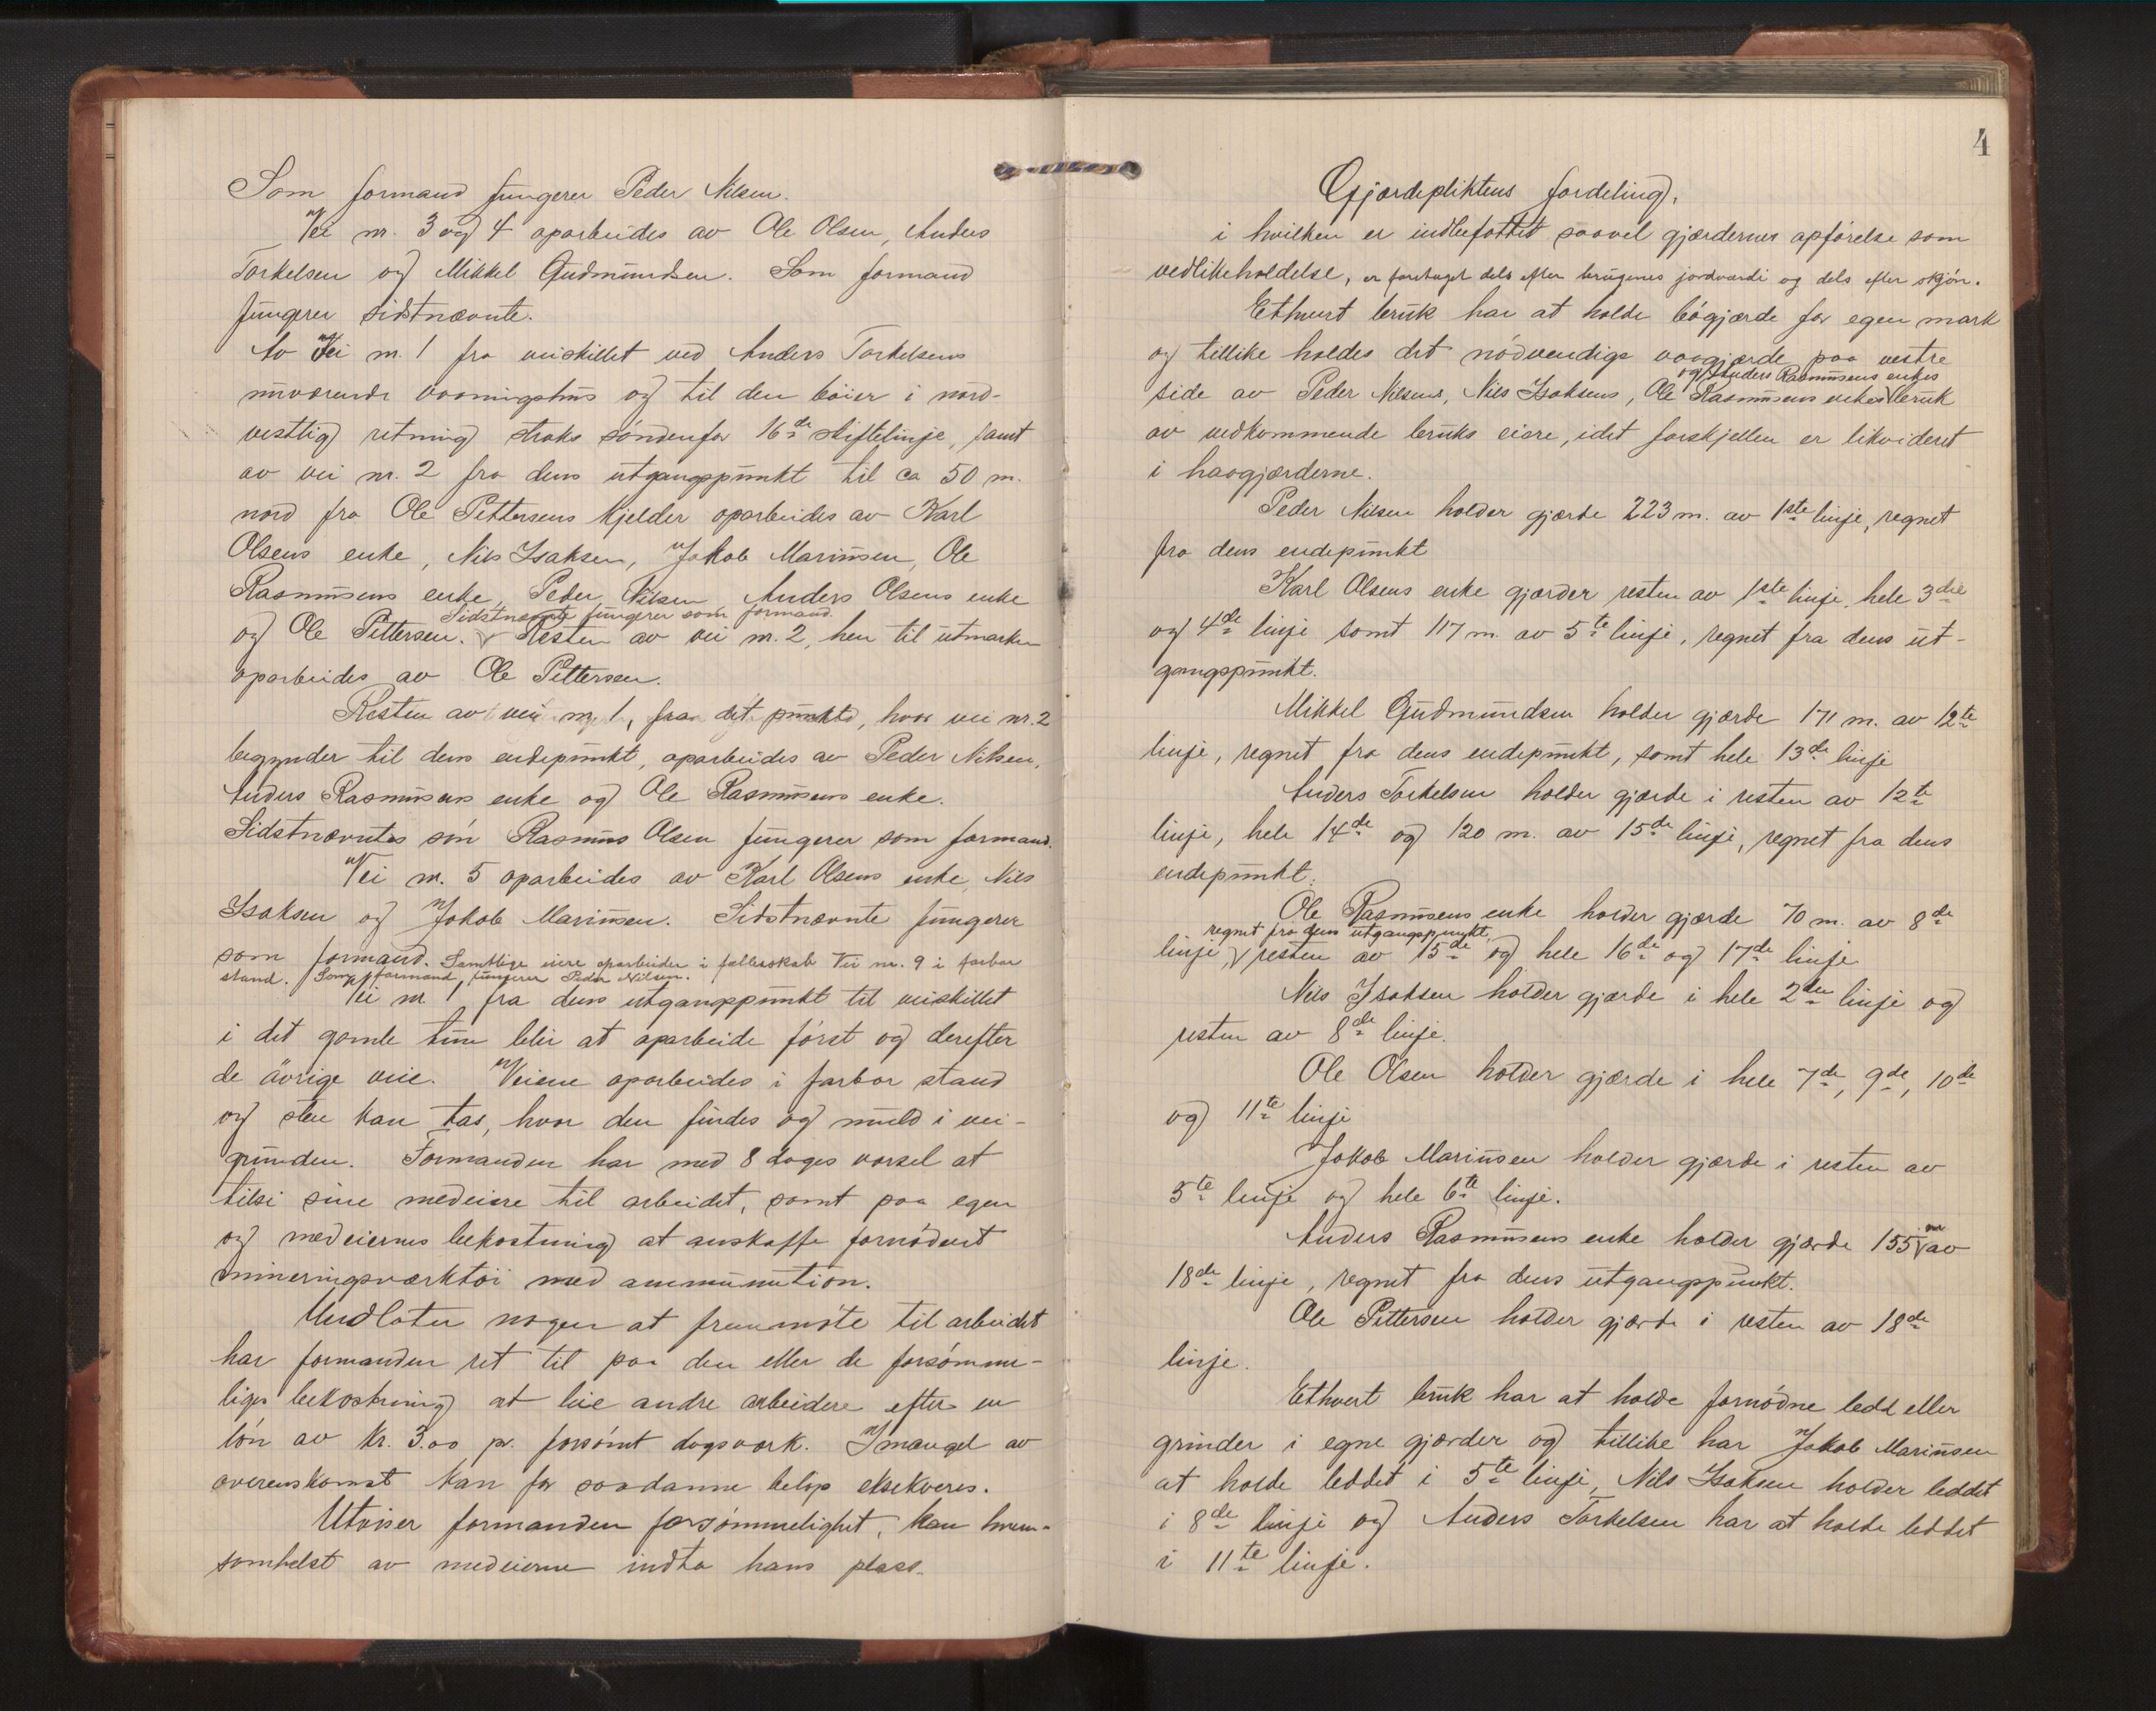 Som formand fungerer Peder Nilsen.
Vei nr. 3 og 4 oparbeides av Ole Olsen, Anders
Torkelsen og Mikkel Gudmundsen. Som formand
fungerer sidstnævnte.
Av Vei nr. 1 fra veiskillet ved Anders Torkelsens
nuværende vaaningshus og til den bøier i nord-
vestlig retning straks søndenfor 16de skiftelinje, samt
av vei nr. 2 fra dens utgangspunkt til ca 50 m.
nord fra Ole Pettersens kjelder oparbeides av Karl
Olsens enke, Nils Isaksen, Jakob Mariusen, Ole
Rasmusens enke, Peder Nilsen, Anders Olsens enke
Sidstnævnte fungerer som formand.
og Ole Pettersen. Resten av vei nr. 2, hen til utmarken
oparbeides av Ole Pettersen.
Resten av vei nr. 1, fra det punkt, hvor vei nr. 2
begynder til dens endepunkt, oparbeides av Peder Nilsen,
Anders Rasmusens enke og Ole Rasmusens enke.
Sidstnævntes søn Rasmus Olsen fungerer som formand.
Vei nr. 5 oparbeides av Karl Olsens enke, Nils
Isaksen og Jakob Mariusen. Sidstnævnte fungerer
som formand. Samtlige eiere oparbeider i fællesskab Vei nr. 9 i farbar
stand. Som formand fungerer Peder Nilsen.
Vei nr 1 fra dens utgangspunkt til veiskillet
i det gamle tun blir at oparbeide først og derefter
de øvrige veie. Veiene oparbeides i farbar stand
og sten kan tas, hvor den findes og muld i vei-
grunden. Formanden har med 8 dages varsel at
tilsi sine medeiere til arbeidet, samt paa egen
og medeiernes bekostning at anskaffe fornødent
mineringsværktøi med ammunition.
Undlater nogen at fremmøte til arbeidet
har formanden ret til paa den eller de forsømme-
liges bekostning at leie andre arbeidere efter en
løn av kr. 3.00 pr. forsømt dagsverk. I mangel av
overenskomst kan for saadanne beløp eksekveres.
Utviser formanden forsømmelighet, kan hvem-
somhelst av medeierne indta hans plass.
4
Gjærdepliktens fordeling,
i hvilken er indbefattet saavel gjærdernes opførelse som
vedlikeholdelse, er foretaget dels efter brugenes jordværdi og dels efter skjøn.
Ethvert bruk har at holde bøgjærde for egen mark
og tillike holdes det nødvendige vaagjærde paa vestre
og Anders Rasmusens enkes
side av Peder Nilsens, Nils Isaksens, Ole Rasmusens enkes bruk
av vedkommende bruks eiere, idet forskjellen er likvideret
i haagjærderne.
Peder Nilsen holder gjærde 223 m. av 1ste linje, regnet
fra dens endepunkt
Karl Olsens enke gjærder resten av 1ste linje, hele 3die
og 4de linje samt 117 m. av 5te linje, regnet fra dens ut-
gangspunkt.
Mikkel Gudmundsen holder gjærde 171 m. av 12te
linje, regnet fra dens endepunkt, samt hele 13de linje
Anders Torkelsen holder gjærde i resten av 12te
linje, hele 14de og 120 m. av 15de linje, regnet fra dens
endepunkt.
Ole Rasmusens enke holder gjærde 70 m. av 8de
regnet fra dens utgangspunkt,
linje, resten av 15de og hele 16de og 17de linje
Nils Isaksen holder gjærde i hele 2den linje og
resten av 8de linje.
Ole Olsen holder gjærde i hele 7de, 9de, 10de
og 11te linje
Jakob Mariusen holder gjærde i resten av
5te linje og hele 6te linje.
Anders Rasmusens enke holder gjærde 155 m av
18de linje, regnet fra dens utgangspunkt.
Ole Pettersen holder gjærde i resten av 18de
linje.
Ethvert bruk har at holde fornødne ledd eller
grinder i egne gjærder og tillike har Jakob Mariusen
at holde leddet i 5te linje, Nils Isaksen holder leddet
i 8de linje og Anders Torkelsen har at holde leddet
i 11te linje.